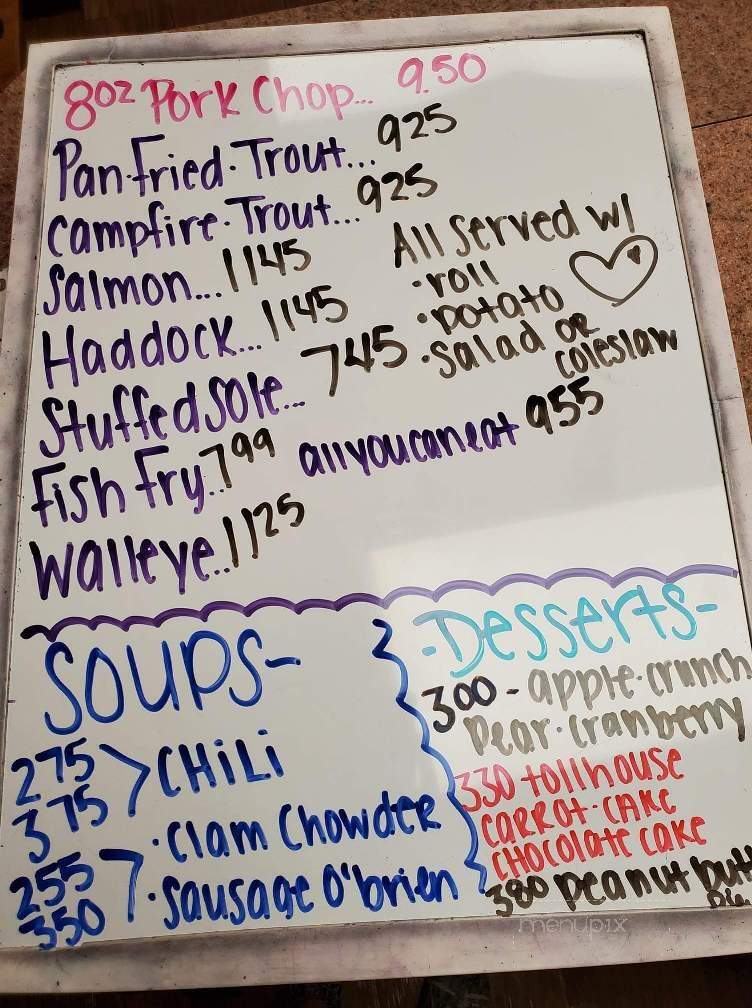 8oz Pork Chop... 9.50
Pan Fried Trout... 925
Campfire Trout... 925
Salmon... 1145
Haddock... 1145
Stuffed Sole... 745
All Served w/
• roll
• potato
• salad or
coleslaw
Fish Fry.. 799 all you can eat 955
Walleye.. 1125
SOUPS-
275
375 > CHiLi
255
350 > • Clam Chowder
• Sausage O'brien
-Desserts-
300 - apple crunch
Pear Cranberry
330 tollhouse
CARROt CAKE
CHOCOlate CAKe
380 peanut butt
Pie
menupix